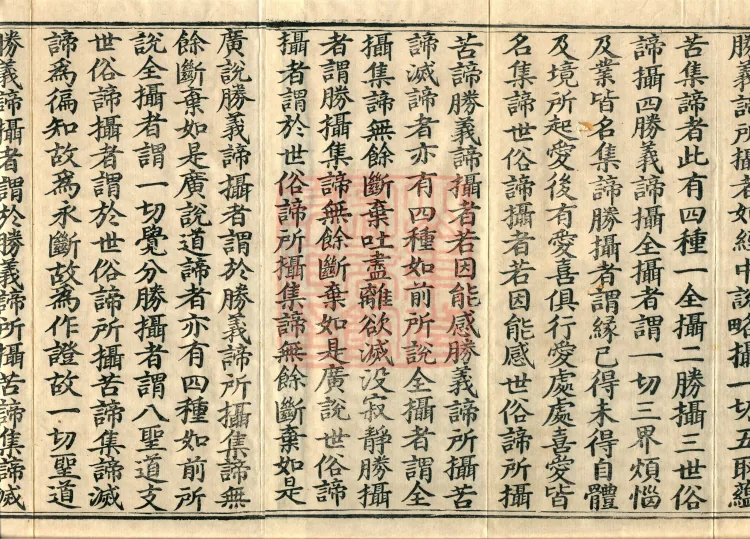 勝義諦所攝者如經中說略攝一切五取蘊
苦集諦者此有四種一全攝二勝攝三世俗
諦攝四勝義諦攝全攝者謂一切三界煩惱
及業皆名集諦勝攝者謂緣已得未得自體
及境所起愛後有愛喜俱行愛處處喜愛皆
名集諦世俗諦攝者若因能感世俗諦所攝
苦諦勝義諦攝者若因能感勝義諦所攝苦
諦滅諦者亦有四種如前所說全攝者謂全
攝集諦無餘斷棄吐盡離欲滅没寂靜勝攝
者謂勝攝集諦無餘斷棄如是廣說世俗諦
攝者謂於世俗諦所攝集諦無餘斷棄如是
廣說勝義諦攝者謂於勝義諦所攝集諦無
餘斷棄如是廣說道諦者亦有四種如前所
說全攝者謂一切覺分勝攝者謂八聖道支
世俗諦攝者謂於世俗諦所攝苦諦集諦滅
諦爲徧知故爲永斷故爲作證故一切聖道
勝義諦攝者謂於勝義諦所攝苦諦集諦滅